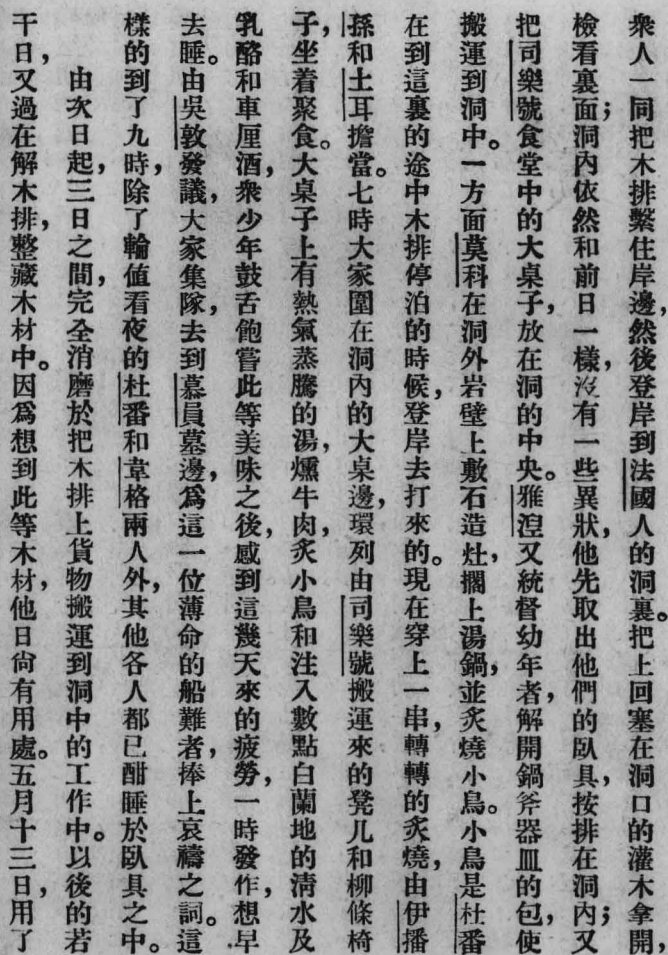 衆人一同把木排繫住岸邊，然後登岸到法國人的洞裏。把上回塞在洞口的灌木拿開，
檢看裏面；洞內依然和前日一樣，沒有一些異狀，他先取出他們的臥具，按排在洞內；又
把司樂號食堂中的大桌子，放在洞的中央。雅涅又統督幼年者，解開鍋斧器皿的包，使
搬運到洞中。一方面莫科在洞外岩壁上敷石造灶，擱上湯鍋，並炙燒小鳥。小鳥是杜番
在到這裏的途中木排停泊的時候，登岸去打來的。現在穿上一串，轉轉的炙燒，由伊播
孫和土耳擔當。七時大家圍在洞內的大桌邊，環列由司樂號搬運來的凳几和柳條椅
子，坐着聚食。大桌子上有熱氣蒸騰的湯，燻牛肉，炙小鳥和注入數點白蘭地的清水及
乳酪和車厘酒，衆少年鼓舌飽嘗此等美味之後，感到這幾天來的疲勞，一時發作，想早
去睡。由吳敦發議，大家集隊，去到慕員墓邊，爲這一位薄命的船難者，捧上哀禱之詞。這
樣的到了九時，除了輪值看夜的杜番和韋格兩人外，其他各人都已酣睡於臥具之中。
由次日起，三日之間，完全消磨於把木排上貨物搬運到洞中的工作中。以後的若
干日，又過在解木排，整藏木材中。因爲想到此等木材，他日尙有用處。五月十三日，用了